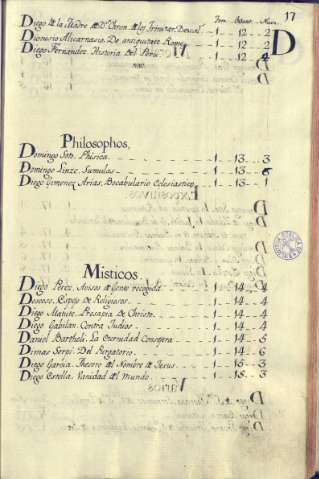 17
Tom. Estan. Num.
D
Diego de la Madre de D. Chron. de los Trinitar. Descal. 1 12 2
Dionisio Alicarnasio. De antiquitate Roma 1 12 2
Diego Fernandez. Historia del Peru 1 12 4
Philosophos.
Domingo Soto. Phisica 1 13 3
Domingo Linze. Sumulas 1 13 6
Diego Gimenez Arias. Bocabulario Eclesiastico 1 13 1
Misticos
Diego Perez. Avisos de Gente recogida 1 14 4
Espejo de Religiosos 1 14 4
Diego Prosapia de Christo 1 14 4
Diego Gabilan. Contra Judios 1 14 4
Daniel Bartholi. La Eternidad Consegera 1 14 5
Dimas Serpi. Del Purgatorio 1 14 6
Diego Garcia. Thesoro del Nombre de Jesus 1 15 3
Diego Estella. Vanidad del Mundo 1 15 3